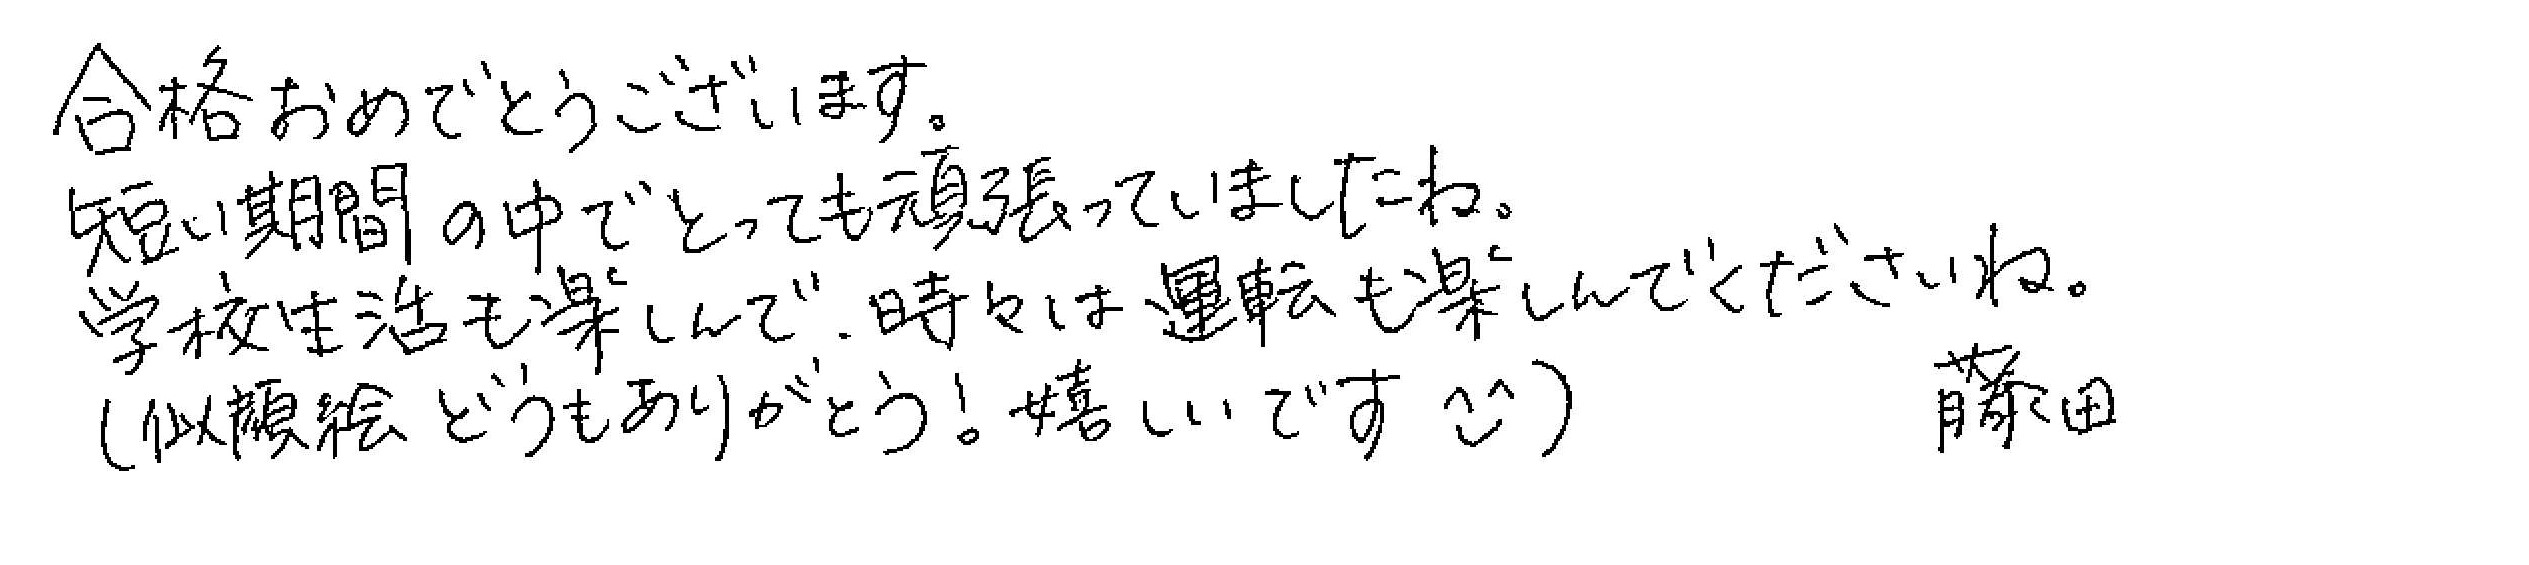 合格おめでとうございます。
短い期間の中でとっても頑張っていましたね。
学校生活も楽しんで、時々は運転も楽しんでくださいね。
(似顔絵どうもありがとう!嬉しいです^^)
藤田